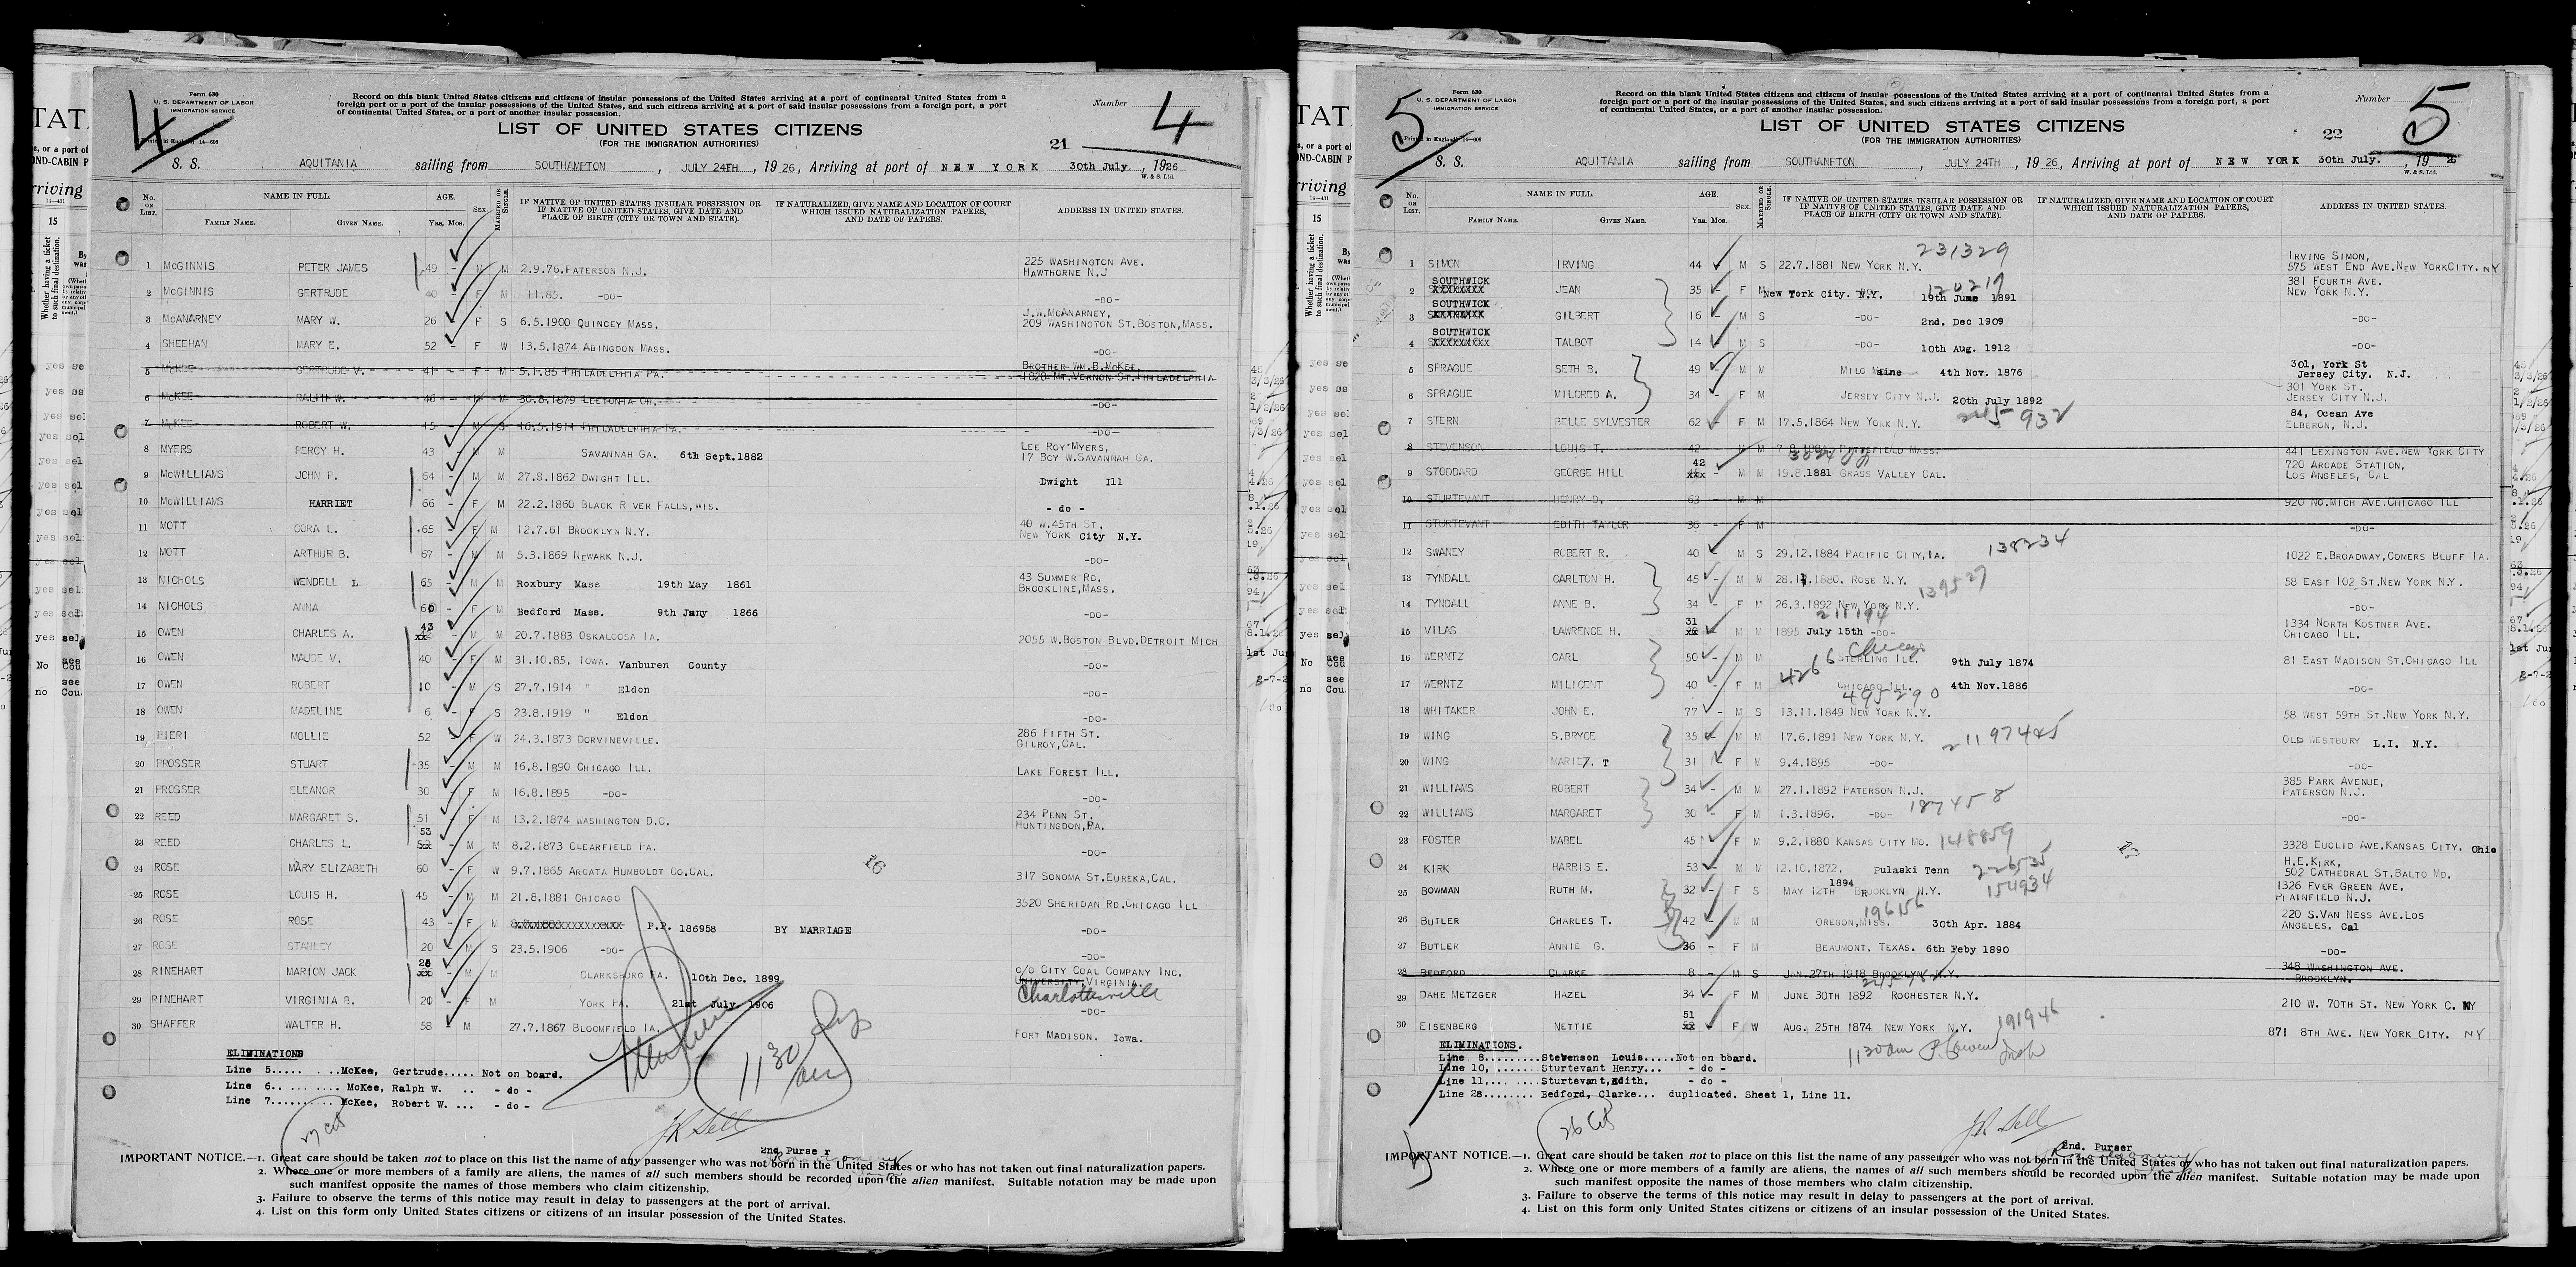 4
Form 630
U. S. DEPARTMENT OF LABOR
IMMIGRATION SERVICE
Record on this blank United States citizens and citizens of insular possessions of the United States arriving at a port of continental United States from a
foreign port or a port of the insular possessions of the United States, and such citizens arriving at a port of said insular possessions from a foreign port, a port
of continental United States, or a port of another insular possession.
Number 4
LIST OF UNITED STATES CITIZENS
(FOR THE IMMIGRATION AUTHORITIES)
21
S. S. AQUITANIA sailing from SOUTHAMPTON, JULY 24TH, 1926, Arriving at port of NEW YORK 30th July., 1926
W. & S. Ltd.
No. ON LIST. NAME IN FULL. FAMILY NAME. GIVEN NAME. AGE. Yrs. Mos. SEX. MARRIED OR SINGLE. IF NATIVE OF UNITED STATES INSULAR POSSESSION OR IF NATIVE OF UNITED STATES, GIVE DATE AND PLACE OF BIRTH (CITY OR TOWN AND STATE). IF NATURALIZED, GIVE NAME AND LOCATION OF COURT WHICH ISSUED NATURALIZATION PAPERS, AND DATE OF PAPERS. ADDRESS IN UNITED STATES.
1 McGINNIS PETER JAMES 49 - M M 2.9.76. PATERSON N.J. 225 WASHINGTON AVE. HAWTHORNE N.J
2 McGINNIS GERTRUDE 40 - F M 11.85. -DO- -DO-
3 McANARNEY MARY W. 26 - F S 6.5.1900 QUINCEY MASS. J.W.McANARNEY, 209 WASHINGTON ST.BOSTON,MASS.
4 SHEEHAN MARY E. 52 - F W 13.5.1874 ABINGDON MASS. -DO-
5 McKEE GERTRUDE V. 41 - F M 5.1.85 PHILADELPHIA PA. BROTHER-WM.B.McKEE, 1828 MT.VERNON ST.PHILADELPHIA
6 McKEE RALPH W. 46 - M M 30.8.1879 LEETONIA OH. -DO-
7 McKEE ROBERT W. 15 - M S 16.5.1911 PHILADELPHIA PA. -DO-
8 MYERS PERCY H. 43 M M SAVANNAH GA. 6th Sept.1882 LEE ROY MYERS, 17 BOY W.SAVANNAH GA.
9 McWILLIAMS JOHN P. 64 - M M 27.8.1862 DWIGHT ILL. Dwight Ill
10 McWILLIAMS HARRIET 66 - F M 22.2.1860 BLACK R VER FALLS,WIS. - do -
11 MOTT CORA L. 65 - F M 12.7.61 BROOKLYN N.Y. 40 W.45TH ST. NEW YORK City N.Y.
12 MOTT ARTHUR B. 67 - M M 5.3.1869 NEWARK N.J. -DO-
13 NICHOLS WENDELL L 65 - M M Roxbury Mass 19th May 1861 43 SUMMER RD. BROOKLINE,MASS.
14 NICHOLS ANNA 60 - F M Bedford Mass. 9th Jany 1866 -DO-
15 OWEN CHARLES A. 43 M M 20.7.1883 OSKALOOSA IA. 2055 W.BOSTON BLVD.DETROIT MICH
16 OWEN MAUDE V. 40 - F M 31.10.85. IOWA. Vanburen County -DO-
17 OWEN ROBERT 10 - M S 27.7.1914 " Eldon -DO-
18 OWEN MADELINE 6 - F S 23.8.1919 " Eldon -DO-
19 PIERI MOLLIE 52 F W 24.3.1873 DORVINEVILLE. 286 FIFTH ST. GILROY,CAL.
20 PROSSER STUART 35 M M 16.8.1890 CHICAGO ILL. LAKE FOREST ILL.
21 PROSSER ELEANOR 30 F M 16.8.1895 -DO- -DO-
22 REED MARGARET S. 51 F M 13.2.1874 WASHINGTON D.C. 234 PENN ST. HUNTINGDON,PA.
23 REED CHARLES L. 53 M M 8.2.1873 CLEARFIELD PA. -DO-
24 ROSE MARY ELIZABETH 60 - F W 9.7.1865 ARCATA HUMBOLDT CO.CAL. 317 SONOMA ST.EUREKA,CAL.
16
25 ROSE LOUIS H. 45 M M 21.8.1881 CHICAGO 3520 SHERIDAN RD.CHICAGO ILL
26 ROSE ROSE 43 - F M P.P. 186958 BY MARRIAGE -DO-
27 ROSE STANLEY 20 M S 23.5.1906 -DO- -DO-
28 RINEHART MARION JACK 26 M M CLARKSBURG PA. 10th Dec. 1899 c/o CITY COAL COMPANY INC. UNIVERSITY,VIRGINIA. Charlottesville
29 RINEHART VIRGINIA B. 20 - F M YORK PA. 21st July 1906 -DO-
30 SHAFFER WALTER H. 58 - M 27.7.1867 BLOOMFIELD IA. FORT MADISON, Iowa.
1130 am
ELIMINATIONS
Line 5..... McKee, Gertrude..... Not on board.
Line 6.. McKee, Ralph W. .. - do -
Line 7.......... McKee, Robert W. ... - do -
27 cit
J R Sell
2nd Purser
IMPORTANT NOTICE.—1. Great care should be taken not to place on this list the name of any passenger who was not born in the United States or who has not taken out final naturalization papers.
2. Where one or more members of a family are aliens, the names of all such members should be recorded upon the alien manifest. Suitable notation may be made upon
such manifest opposite the names of those members who claim citizenship.
3. Failure to observe the terms of this notice may result in delay to passengers at the port of arrival.
4. List on this form only United States citizens or citizens of an insular possession of the United States.
5
Form 630
U. S. DEPARTMENT OF LABOR
IMMIGRATION SERVICE
Record on this blank United States citizens and citizens of insular possessions of the United States arriving at a port of continental United States from a
foreign port or a port of the insular possessions of the United States, and such citizens arriving at a port of said insular possessions from a foreign port, a port
of continental United States, or a port of another insular possession.
Number 5
LIST OF UNITED STATES CITIZENS
(FOR THE IMMIGRATION AUTHORITIES)
22
S. S. AQUITANIA sailing from SOUTHAMPTON, JULY 24TH, 1926, Arriving at port of NEW YORK 30th July., 1926
W. & S. Ltd.
No. ON LIST. NAME IN FULL. FAMILY NAME. GIVEN NAME. AGE. Yrs. Mos. SEX. MARRIED OR SINGLE. IF NATIVE OF UNITED STATES INSULAR POSSESSION OR IF NATIVE OF UNITED STATES, GIVE DATE AND PLACE OF BIRTH (CITY OR TOWN AND STATE). IF NATURALIZED, GIVE NAME AND LOCATION OF COURT WHICH ISSUED NATURALIZATION PAPERS, AND DATE OF PAPERS. ADDRESS IN UNITED STATES.
231329
1 SIMON IRVING 44 M S 22.7.1881 NEW YORK N.Y. IRVING SIMON, 575 WEST END AVE.NEW YORKCITY. NY
120217
2 SOUTHWICK JEAN 35 F M New York City. N.Y. 19th June 1891 381 FOURTH AVE. NEW YORK N.Y.
3 SOUTHWICK GILBERT 16 M S -DO- 2nd. Dec 1909 -DO-
4 SOUTHWICK TALBOT 14 M S -DO- 10th Aug. 1912 -DO-
5 SPRAGUE SETH B. 49 M M MILO Maine 4th Nov. 1876 301, York St Jersey City. N.J.
6 SPRAGUE MILDRED A. 34 - F M JERSEY CITY N.J. 20th July 1892 301 YORK ST. JERSEY CITY N.J.
7 STERN BELLE SYLVESTER 62 - F M 17.5.1864 NEW YORK N.Y. 245932 84, Ocean Ave ELBERON, N.J.
8 STEVENSON LOUIS T. 42 M M 7.8.1884. PITTSFIELD MASS. 441 LEXINGTON AVE.NEW YORK CITY
9 STODDARD GEORGE HILL 42 M M 19.8.1881 GRASS VALLEY CAL. 720 ARCADE STATION, LOS ANGELES, CAL
10 STURTEVANT HENRY D. 63 M M 920 NO.MICH AVE.CHICAGO ILL
11 STURTEVANT EDITH TAYLOR 36 - F M -DO-
12 SWANEY ROBERT R. 40 M S 29.12.1884 PACIFIC CITY,IA. 138234 1022 E.BROADWAY,COMERS BLUFF IA.
13 TYNDALL CARLTON H. 45 - M M 28.1.1880. ROSE N.Y. 139527 58 EAST 102 ST.NEW YORK N.Y.
14 TYNDALL ANNE B. 34 - F M 26.3.1892 NEW YORK N.Y. -DO-
211194
15 VILAS LAWRENCE H. 31 M M 1895 July 15th -DO- 1334 NORTH KOSTNER AVE. CHICAGO ILL.
Chicago
16 WERNTZ CARL 50 - M M STERLING ILL. 9th July 1874 81 EAST MADISON ST.CHICAGO ILL
4266
17 WERNTZ MILICENT 40 - F M CHICAGO ILL. 4th Nov.1886 -DO-
495290
18 WHITAKER JOHN E. 77 - M S 13.11.1849 NEW YORK N.Y. 58 WEST 59TH ST.NEW YORK N.Y.
19 WING S.BRYCE 35 M M 17.6.1891 NEW YORK N.Y. OLD WESTBURY L.I. N.Y.
20 WING MARIE T 31 F M 9.4.1895 -DO- -DO-
21 WILLIAMS ROBERT 34 - M M 27.1.1892 PATERSON N.J. 385 PARK AVENUE, PATERSON N.J.
22 WILLIAMS MARGARET 30 - F M 1.3.1896. -DO- 187458 -DO-
23 FOSTER MABEL 45 F M 9.2.1880 KANSAS CITY MO. 148859 3328 EUCLID AVE.KANSAS CITY. Ohio
24 KIRK HARRIS E. 53 M M 12.10.1872. Pulaski Tenn 226535 H.E.KIRK, 502 CATHEDRAL ST.BALTO MD.
25 BOWMAN RUTH M. 32 - F S MAY 12TH 1894 BROOKLYN N.Y. 154934 1326 EVER GREEN AVE. PLAINFIELD N.J.
196156
26 BUTLER CHARLES T. 42 M M OREGON,MISS. 30th Apr. 1884 220 S.VAN NESS AVE.LOS ANGELES. Cal
27 BUTLER ANNIE G. 36 - F M BEAUMONT, TEXAS. 6th Feby 1890 -DO-
28 BEDFORD CLARKE 8 - M S JAN.27TH 1918 BROOKLYN N.Y. 348 WASHINGTON AVE. BROOKLYN.
29 DAHE METZGER HAZEL 34 - F M JUNE 30TH 1892 ROCHESTER N.Y. 210 W. 70TH ST. NEW YORK C. NY
30 EISENBERG NETTIE 51 F W AUG. 25TH 1874 NEW YORK N.Y. 191946 871 8TH AVE. NEW YORK CITY. NY
1130am
ELIMINATIONS.
Line 8.........Stevenson Louis.....Not on board.
Line 10, .......Sturtevant Henry... - do -
Line 11,... ....Sturtevant,Edith. - do -
Line 28........ Bedford, Clarke... duplicated. Sheet 1, Line 11.
26 Cit
J R Sell
2nd. Purser
IMPORTANT NOTICE.—1. Great care should be taken not to place on this list the name of any passenger who was not born in the United States or who has not taken out final naturalization papers.
2. Where one or more members of a family are aliens, the names of all such members should be recorded upon the alien manifest. Suitable notation may be made upon
such manifest opposite the names of those members who claim citizenship.
3. Failure to observe the terms of this notice may result in delay to passengers at the port of arrival.
4. List on this form only United States citizens or citizens of an insular possession of the United States.